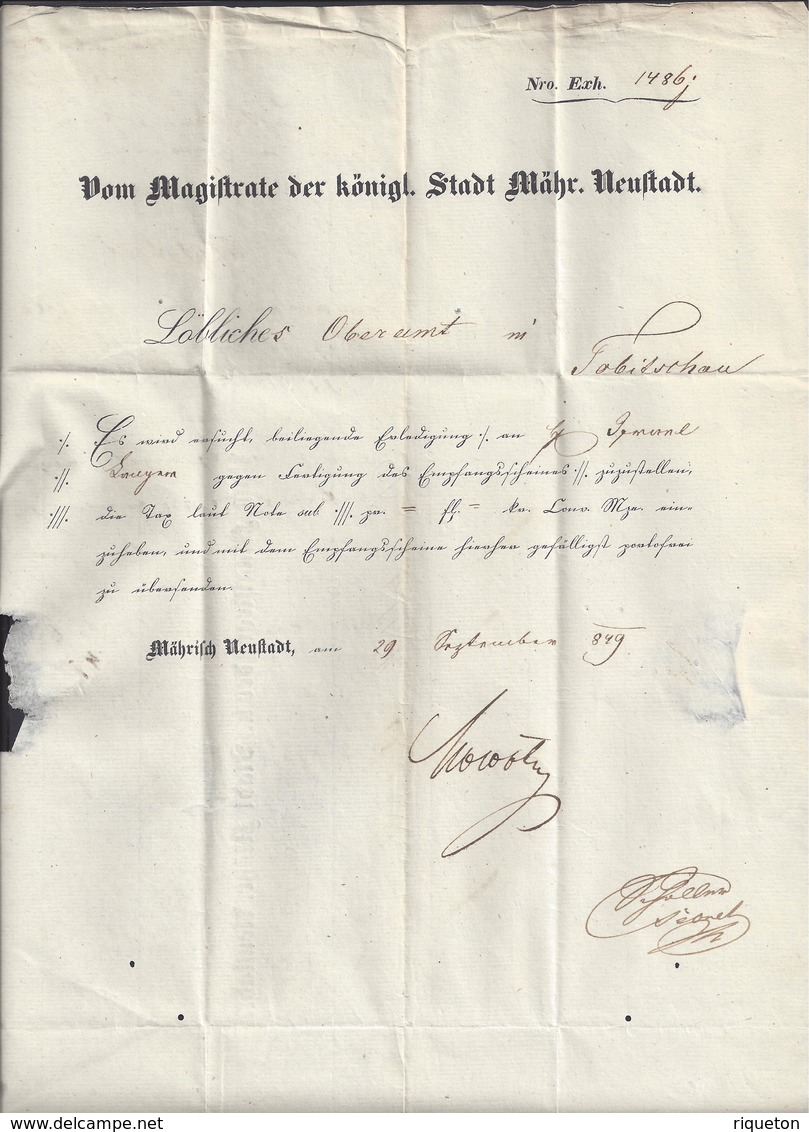 Nro. Exh. 1486
Vom Magistrate der königl. Stadt Mähr. Neustadt.
Löbliches Oberamt in
Tobitschau
·/. Es wird ersucht, beiliegende Erledigung ·/. an H Israel
·//. gegen Fertigung des Empfangsscheines ·//. zuzustellen,
·///. die Tax laut Note sub ·///. pr. = fl. = kr. Conv. Mze. ein-
zuheben, und mit dem Empfangsscheine hierher gefälligst portofrei
zu übersenden.
Mährisch Neustadt, am 29 September 849
Nowotny
delcampe.net
riqueton